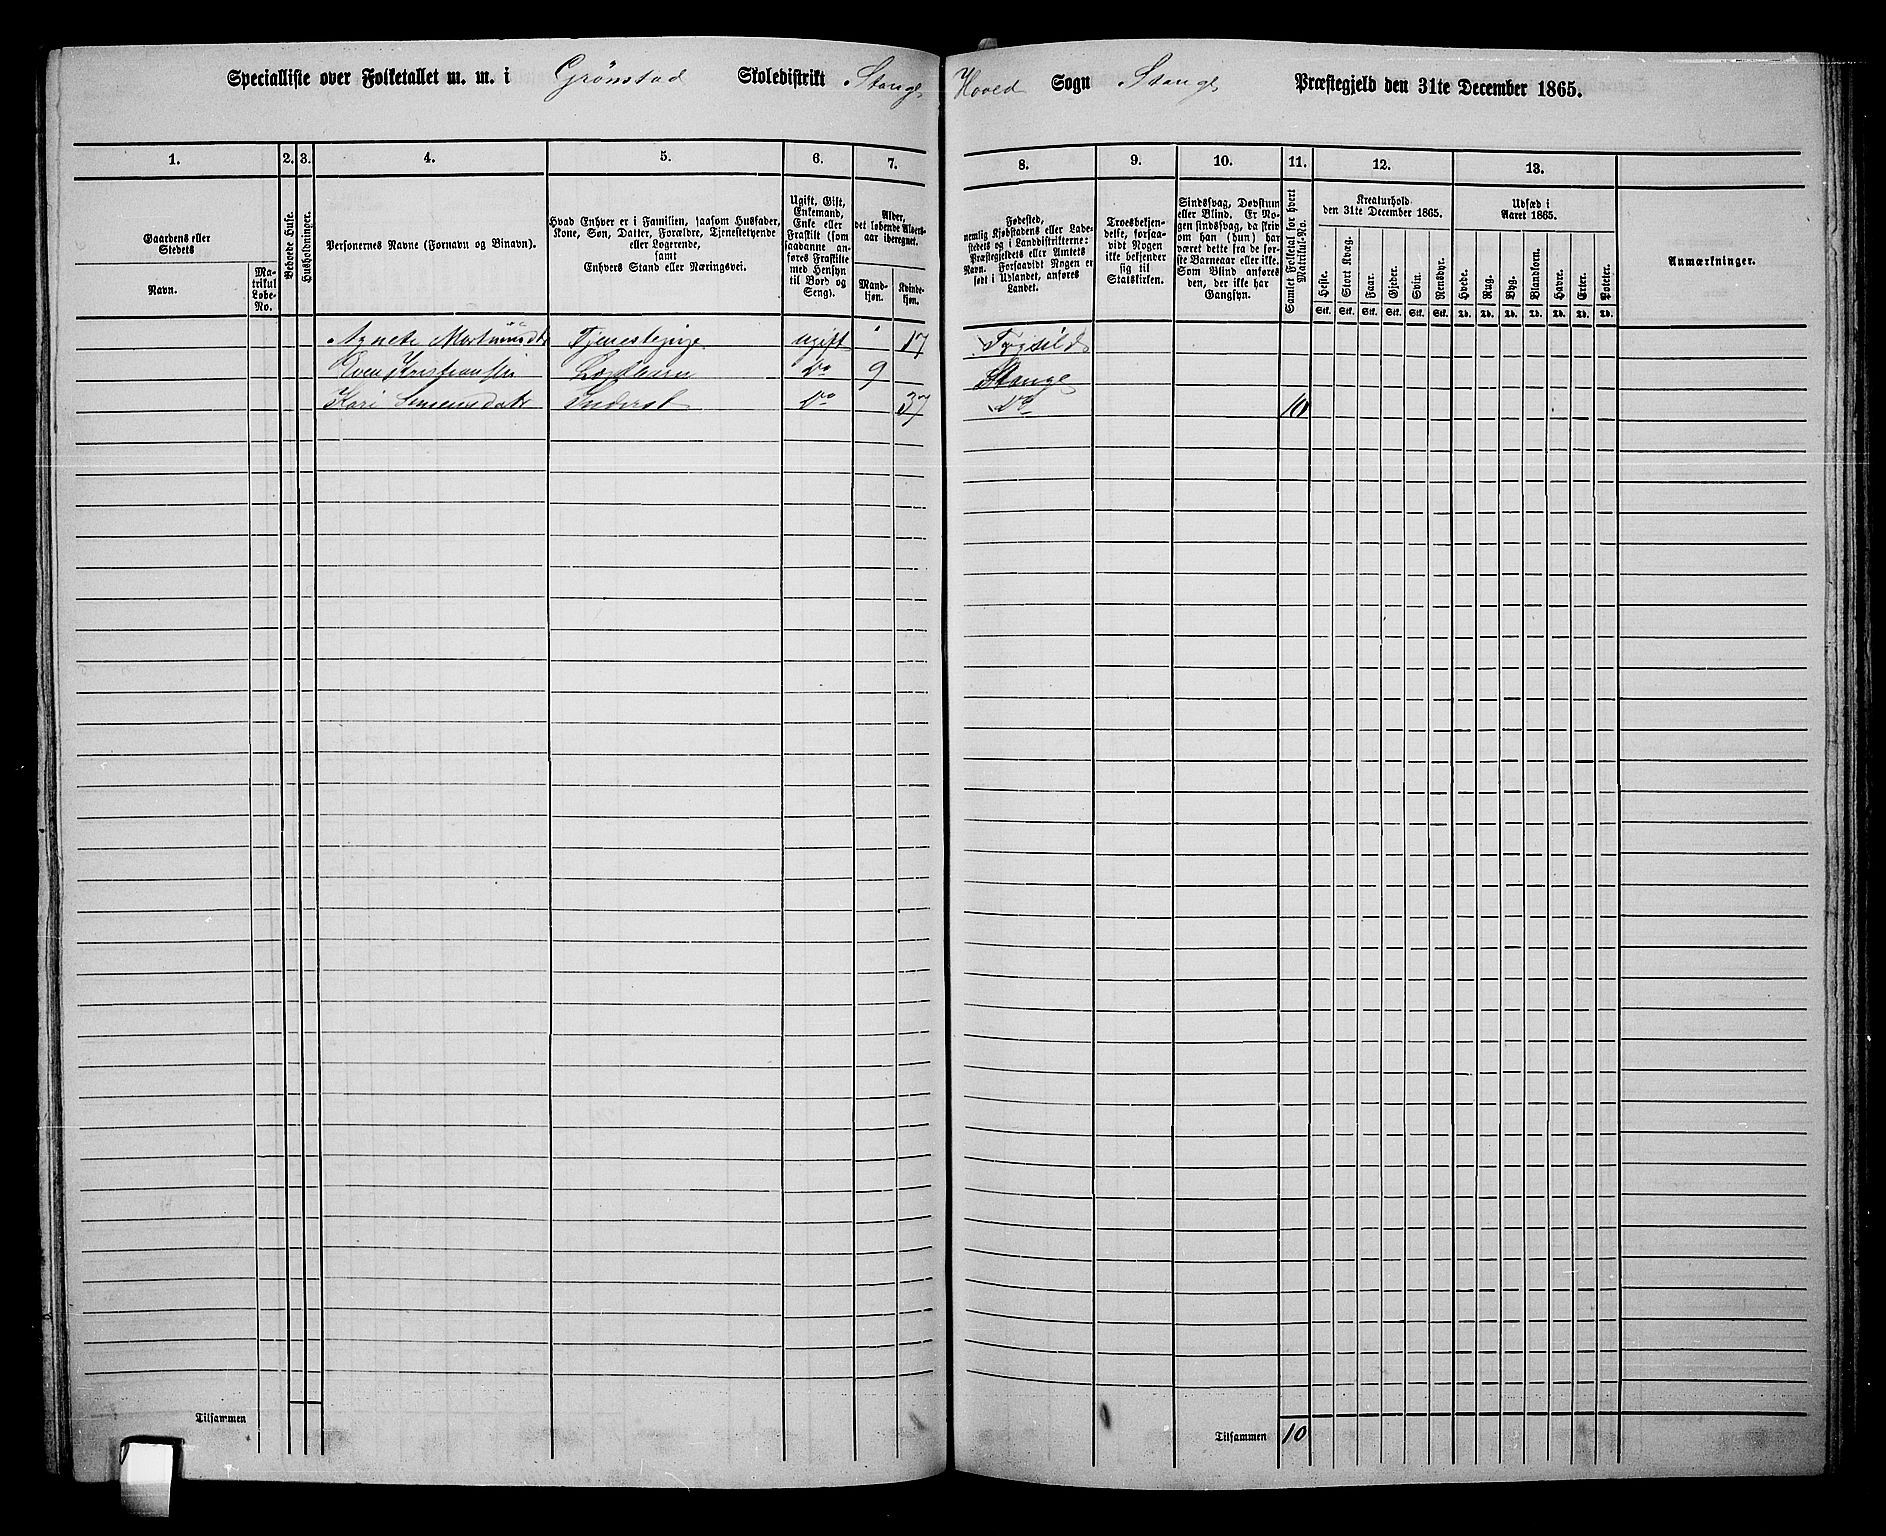 Specialliste over Folketallet m. m. i Grönstad Skoledistrikt Stange Hoved Sogn Stange Præstegjeld den 31te December 1865.
1. 2. 3. 4. 5. 6. 7. 8. 9. 10. 11. 12. 13.
Gaardens eller Stedets
Navn.
Matrikul Løbe-No.
Beboede Huse.
Husholdninger.
Personernes Navne (Fornavn og Binavn).
Hvad Enhver er i Familien, saasom Husfader,
Kone, Søn, Datter, Forældre, Tjenestetyende
eller Logerende,
samt
Enhvers Stand eller Næringsvei.
Ugift, Gift,
Enkemand,
Enke eller
Fraskilt (som
saadanne an-
føres Fraskilte
med Hensyn
til Bord og
Seng).
Alder,
det løbende Alders-
aar iberegnet.
Mand-
kjøn.
Kvinde-
kjøn.
Fødested,
nemlig Kjøbstadens eller Lade-
stedets og i Landdistrikterne:
Præstegjeldets eller Amtets
Navn. Forsaavidt Nogen er
født i Udlandet, anføres
Landet.
Troesbekjen-
delse, forsaa-
vidt Nogen
ikke bekjender
sig til
Statskirken.
Sindssvag, Døvstum
eller Blind. Er No-
gen sindssvag, da skriv
om han (hun) har
været dette fra de før-
ste Barneaar eller ikke.
Som Blind anføres
den, der ikke har
Gangsyn.
Samlet Folketal for hvert
Matrikul-No.
Kreaturhold
den 31te December 1865.
Heste. Stort Kvæg. Faar. Gjeder. Svin. Rensdyr.
Stk. Stk. Stk. Stk. Stk. Stk.
Udsæd i
Aaret 1865.
Hvede. Rug. Byg. Blandkorn. Havre. Erter. Poteter.
Td. Td. Td. Td. Td. Td. Td.
Anmærkninger.
Agnete Tjenestepige ugift 17
Sven Kristiansen Do 9 Stange
Kari Inderst Do 37 Do 10
Tilsammen
Tilsammen 10